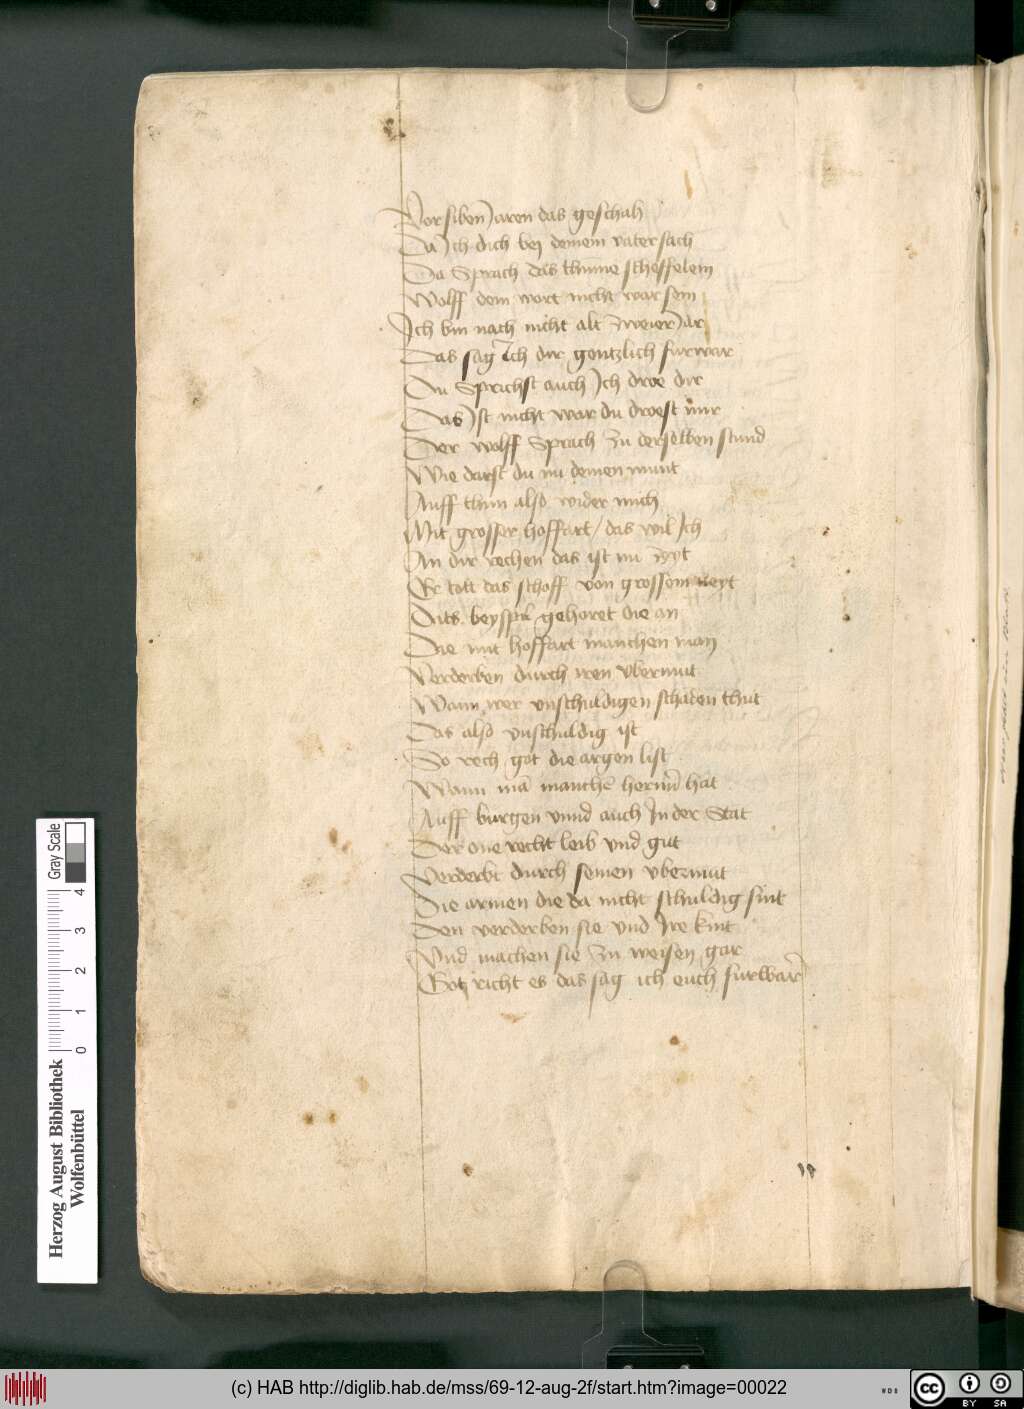 Vor siben Jaren das geschah
Da Ich dich bej deinem vater sach
Da Sprach das thume scheffelein
Wolff dein wort nicht war sein
Ich bin nach nicht alt zweier Jar
Das sag Ich dir gentzlich furwar
Du Sprichst auch Ich droe dir
Das Ist nicht war du droest mir
Der wolff Sprach zu derselben stund
Wie darst du nu deinen munt
Auff thun also wider mich
Mit grosser hoffart / das wil Ich
An dir rechen das ist nu zyt
Er tott das schoff von grossem neyt
Dits beyspil gehoret die an
Die mit hoffart manchen man
Verderben durch iren vbermut
Wann wer vnschuldigen schaden thut
Das also vnschuldig ist
So rech got die argen list
Wann mā manchē herrn hat
Auff burgen vnnd auch In der Stat
Der one recht leib vnd gut
Verderbt durch seinen vbermut
Die armen die da nicht schuldig sint
Den verderben sie vnd Ire kint
Vnd machen sie zu weisen gar
Gotz richt es das sag ich euch furwar
Gray Scale
0 1 2 3 4
Herzog August Bibliothek
Wolfenbüttel
(c) HAB http://diglib.hab.de/mss/69-12-aug-2f/start.htm?image=00022
WDB
cc
BY SA